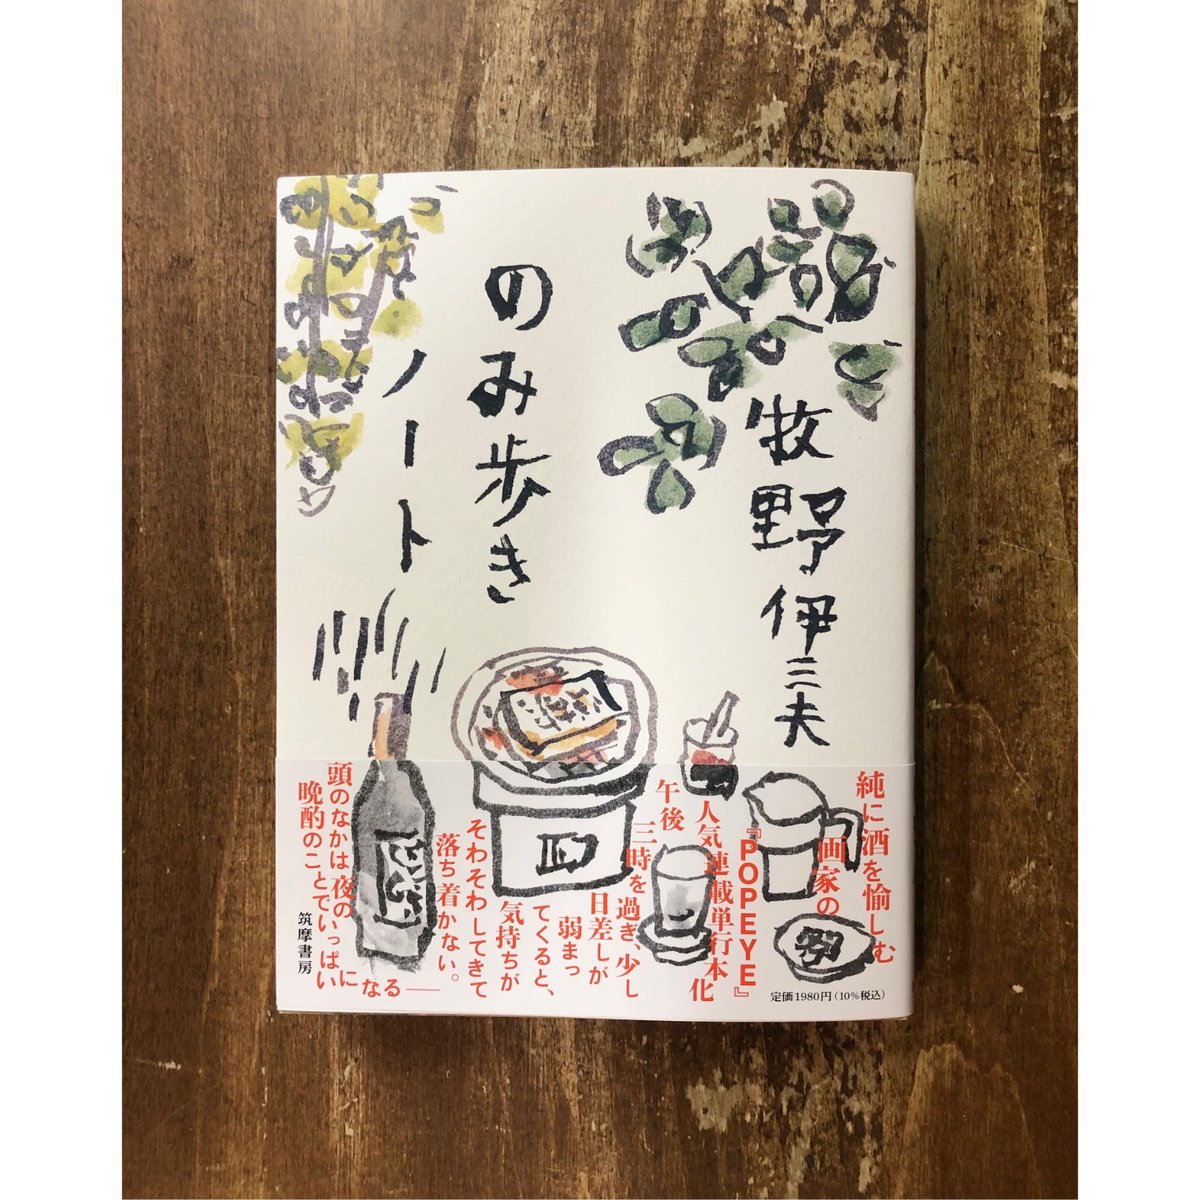 牧野伊三夫
のみ歩き
ノート
純に酒を愉しむ
画家の
『POPEYE』
人気連載単行本化
午後
三時を
過ぎ、少し
日差しが
弱まっ
てくると、
気持ちが
そわそわしてきて
落ち着かない。
頭のなかは夜の
晩酌のことでいっぱい
になる——
筑摩書房
定価1980円(10%税込)